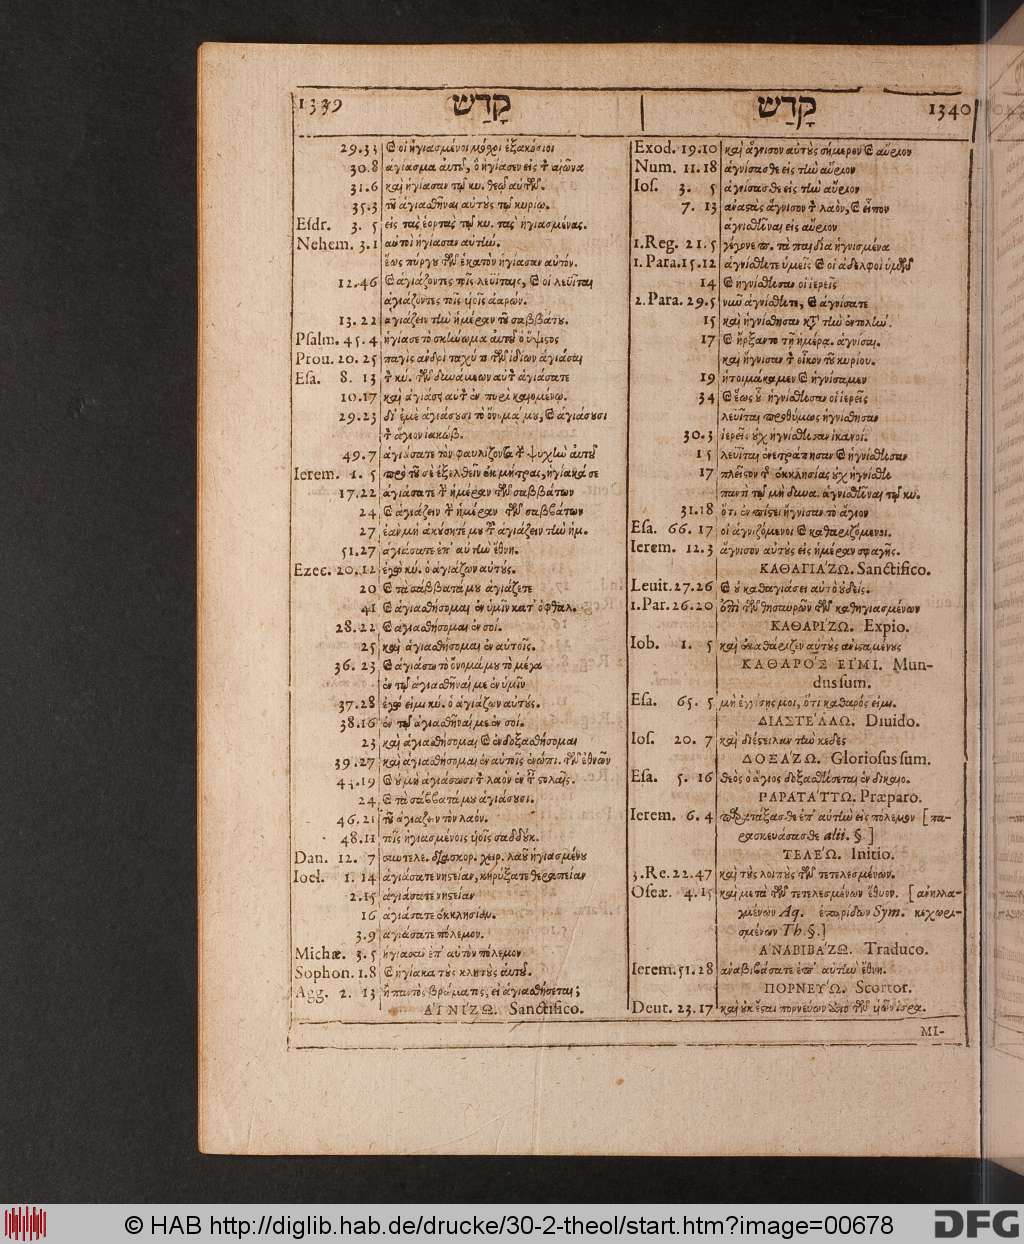 1339 קָדַשׁ
29.33 Ȣ οἱ ἡγιασμένοι μόσχοι ἑξακόσιοι
30.8 ἁγίασμα αὐτοῦ, ὃ ἡγίασεν εἰς τ̀ αἰῶνα
31.6 καὶ ἡγίασαν τῷ κυ. θεῷ αὐτῶν.
35.3 τοῦ ἁγιασθῆναι αὐτοὺς τῷ κυρίῳ.
Esdr. 3. 5 εἰς τὰς ἑορτὰς τῷ κυ. τὰς ἡγιασμένας.
Nehem. 3.1 αὐτοὶ ἡγίασαν αὐτήν.
ἕως πύργου τῶν ἑκατὸν ἡγίασαν αὐτόν.
12.46 ἁγιάζοντες τοῖς λευΐταις, οἱ λευῖται
ἁγιάζοντες τοῖς υἱοῖς ἀαρών.
13.22 ἁγιάζειν τὴν ἡμέραν τοῦ σαββάτου.
Psalm. 45.4 ἡγίασε τὸ σκήνωμα αὐτοῦ ὁ ὕψιστος
Prou. 20.25 παγὶς ἀνδρὶ ταχύ τι τῶν ἰδίων ἁγιάσαι
Esa. 8. 13 κύ. τῶν δυνάμεων αὐτὸν ἁγιάσατε
10.17 καὶ ἁγιάσει αὐτὸν ἐν πυρὶ καιομένῳ.
29.23 δι' ἐμὲ ἁγιάσουσι τὸ ὄνομά μου, ἁγιάσουσι
τὸν ἅγιον ἰακώβ.
49.7 ἁγιάσατε τὸν φαυλίζοντα τὴν ψυχὴν αὐτοῦ
Ierem. 1. 5 πρὸ τοῦ σε ἐξελθεῖν ἐκ μήτρας, ἡγίακά σε
17.22 ἁγιάσατε τὴν ἡμέραν τῶν σαββάτων
24 ἁγιάζειν τὴν ἡμέραν τῶν σαββάτων
27 ἐὰν μὴ ἀκούσητέ μου τοῦ ἁγιάζειν τὴν ἡμ.
51.27 ἁγιάσατε ἐπ' αὐτὴν ἔθνη.
Ezec. 20.12 ἐγὼ κύ. ὁ ἁγιάζων αὐτούς.
20 τὰ σάββατά μου ἁγιάζετε
41 ἁγιασθήσομαι ἐν ὑμῖν κατ' ὀφθαλ.
28.22 ἁγιασθήσομαι ἐν σοί.
25 καὶ ἁγιασθήσομαι ἐν αὐτοῖς.
36. 23 ἁγιάσω τὸ ὄνομά μου τὸ μέγα
ἐν τῷ ἁγιασθῆναί με ἐν ὑμῖν
37.28 ἐγώ εἰμι κύ. ὁ ἁγιάζων αὐτούς.
38.16 ἐν τῷ ἁγιασθῆναί με ἐν σοί.
23 καὶ ἁγιασθήσομαι ἐνδοξασθήσομαι
39.27 καὶ ἁγιασθήσομαι ἐν αὐτοῖς ἐνώπι. τῶν ἐθνῶν
43.19 οὐ μὴ ἁγιάσωσι τὸν λαὸν ἐν ταῖς στολαῖς.
24 τὰ σάββατά μου ἁγιάσουσι.
46.21 τοῦ ἁγιάζειν τὸν λαόν.
48.11 τοῖς ἡγιασμένοις υἱοῖς σαδδούκ.
Dan. 12. 7 συντελε. διασκορ. χειρ. λαοῦ ἡγιασμένου
Ioel. 1. 14 ἁγιάσατε νηστείαν, κηρύξατε θεραπείαν
2.15 ἁγιάσατε νηστείαν
16 ἁγιάσατε ἐκκλησίαν.
3.9 ἁγιάσατε πόλεμον.
Michæ. 3. 5 ἡγίασαν ἐπ' αὐτὸν πόλεμον
Sophon. 1.8 ἡγίακα τοὺς κλητοὺς αὐτοῦ.
Agg. 2. 13 ἢ παντὸς βρώματος, εἰ ἁγιασθήσεται;
ΑΓΝΙΖΩ. Sanctifico.
קָדַשׁ 1340
Exod. 19.10 καὶ ἅγνισον αὐτοὺς σήμερον αὔριον
Num. 11.18 ἁγνίσασθε εἰς τὴν αὔριον
Ios. 3. 5 ἁγνίσασθε εἰς τὴν αὔριον
7. 13 ἀναστὰς ἅγνισον τὸν λαὸν, εἶπον
ἁγιασθῆναι εἰς αὔριον
1.Reg. 21.5 γέγονε π. τὰ παιδία ἡγνισμένα
1.Para. 15.12 ἁγνίσθητε ὑμεῖς οἱ ἀδελφοὶ ὑμῶν
14 ἡγνίσθησαν οἱ ἱερεῖς
2.Para. 29.5 νῦν ἁγνίσθητε, ἁγνίσατε
15 καὶ ἡγνίσθησαν κατὰ τὴν ἐντολήν.
17 ἤρξαντο τῇ ἡμέρᾳ. ἁγνίσαι.
καὶ ἥγνισαν τὸν οἶκον τοῦ κυρίου.
19 ἡτοιμάκαμεν ἡγνίσαμεν
34 ἕως οὗ ἡγνίσθησαν οἱ ἱερεῖς
λευῖται προθύμως ἡγνίσθησαν
30.3 ἱερεῖς οὐχ ἡγνίσθησαν ἱκανοί.
15 λευῖται ἐνετράπησαν ἡγνίσθησαν
17 πλεῖστον τῆς ἐκκλησίας οὐχ ἡγνίσθη
παντὶ τῷ μὴ δυνα. ἁγνισθῆναι τῷ κυ.
31.18 ὅτι ἐν πίστει ἥγνισαν τὸ ἅγιον
Esa. 66. 17 οἱ ἁγνιζόμενοι καθαριζόμενοι.
Ierem. 12.3 ἅγνισον αὐτοὺς εἰς ἡμέραν σφαγῆς.
ΚΑΘΑΓΙΑΖΩ. Sanctifico.
Leuit. 27.26 οὐ καθαγιάσει αὐτὸ οὐδείς.
1.Par. 26.20 ἐπὶ τῶν θησαυρῶν τῶν καθηγιασμένων
ΚΑΘΑΡΙΖΩ. Expio.
Iob. 1. 5 καὶ ἐκαθάριζεν αὐτοὺς ἀνιστάμενος
ΚΑΘΑΡΟΣ ΕΙΜΙ. Mun-
dus sum.
Esa. 65. 5 μὴ ἐγγίσῃς μοι, ὅτι καθαρός εἰμι.
ΔΙΑΣΤΕΛΛΩ. Diuido.
Ios. 20. 7 καὶ διέστειλαν τὴν κεδὲς
ΔΟΞΑΖΩ. Gloriosus sum.
Esa. 5. 16 θεὸς ὁ ἅγιος δοξασθήσεται ἐν δικαιο.
ΠΑΡΑΤΑΤΤΩ. Præparo.
Ierem. 6. 4 παρατάξασθε ἐπ' αὐτὴν εἰς πόλεμον [πα-
ρασκευάσασθε alii. §.]
ΤΕΛΕΩ. Initio.
3.Re. 22.47 καὶ τοὺς λοιποὺς τῶν τετελεσμένων.
Oseæ. 4.15 καὶ μετὰ τῶν τετελεσμένων ἔθυον. [ἀνηλλα-
γμένων Aq. ἑταιρίδων Sym. κεχωρι-
σμένων Th. §.]
ΑΝΑΒΙΒΑΖΩ. Traduco.
Ierem. 51.28 ἀναβιβάσατε ἐπ' αὐτὴν ἔθνη.
ΠΟΡΝΕΥΩ. Scortor.
Deut. 23.17 καὶ οὐκ ἔσται πορνεύων ἀπὸ τῶν υἱῶν ἰσρα.
MI-
© HAB http://diglib.hab.de/drucke/30-2-theol/start.htm?image=00678
DFG